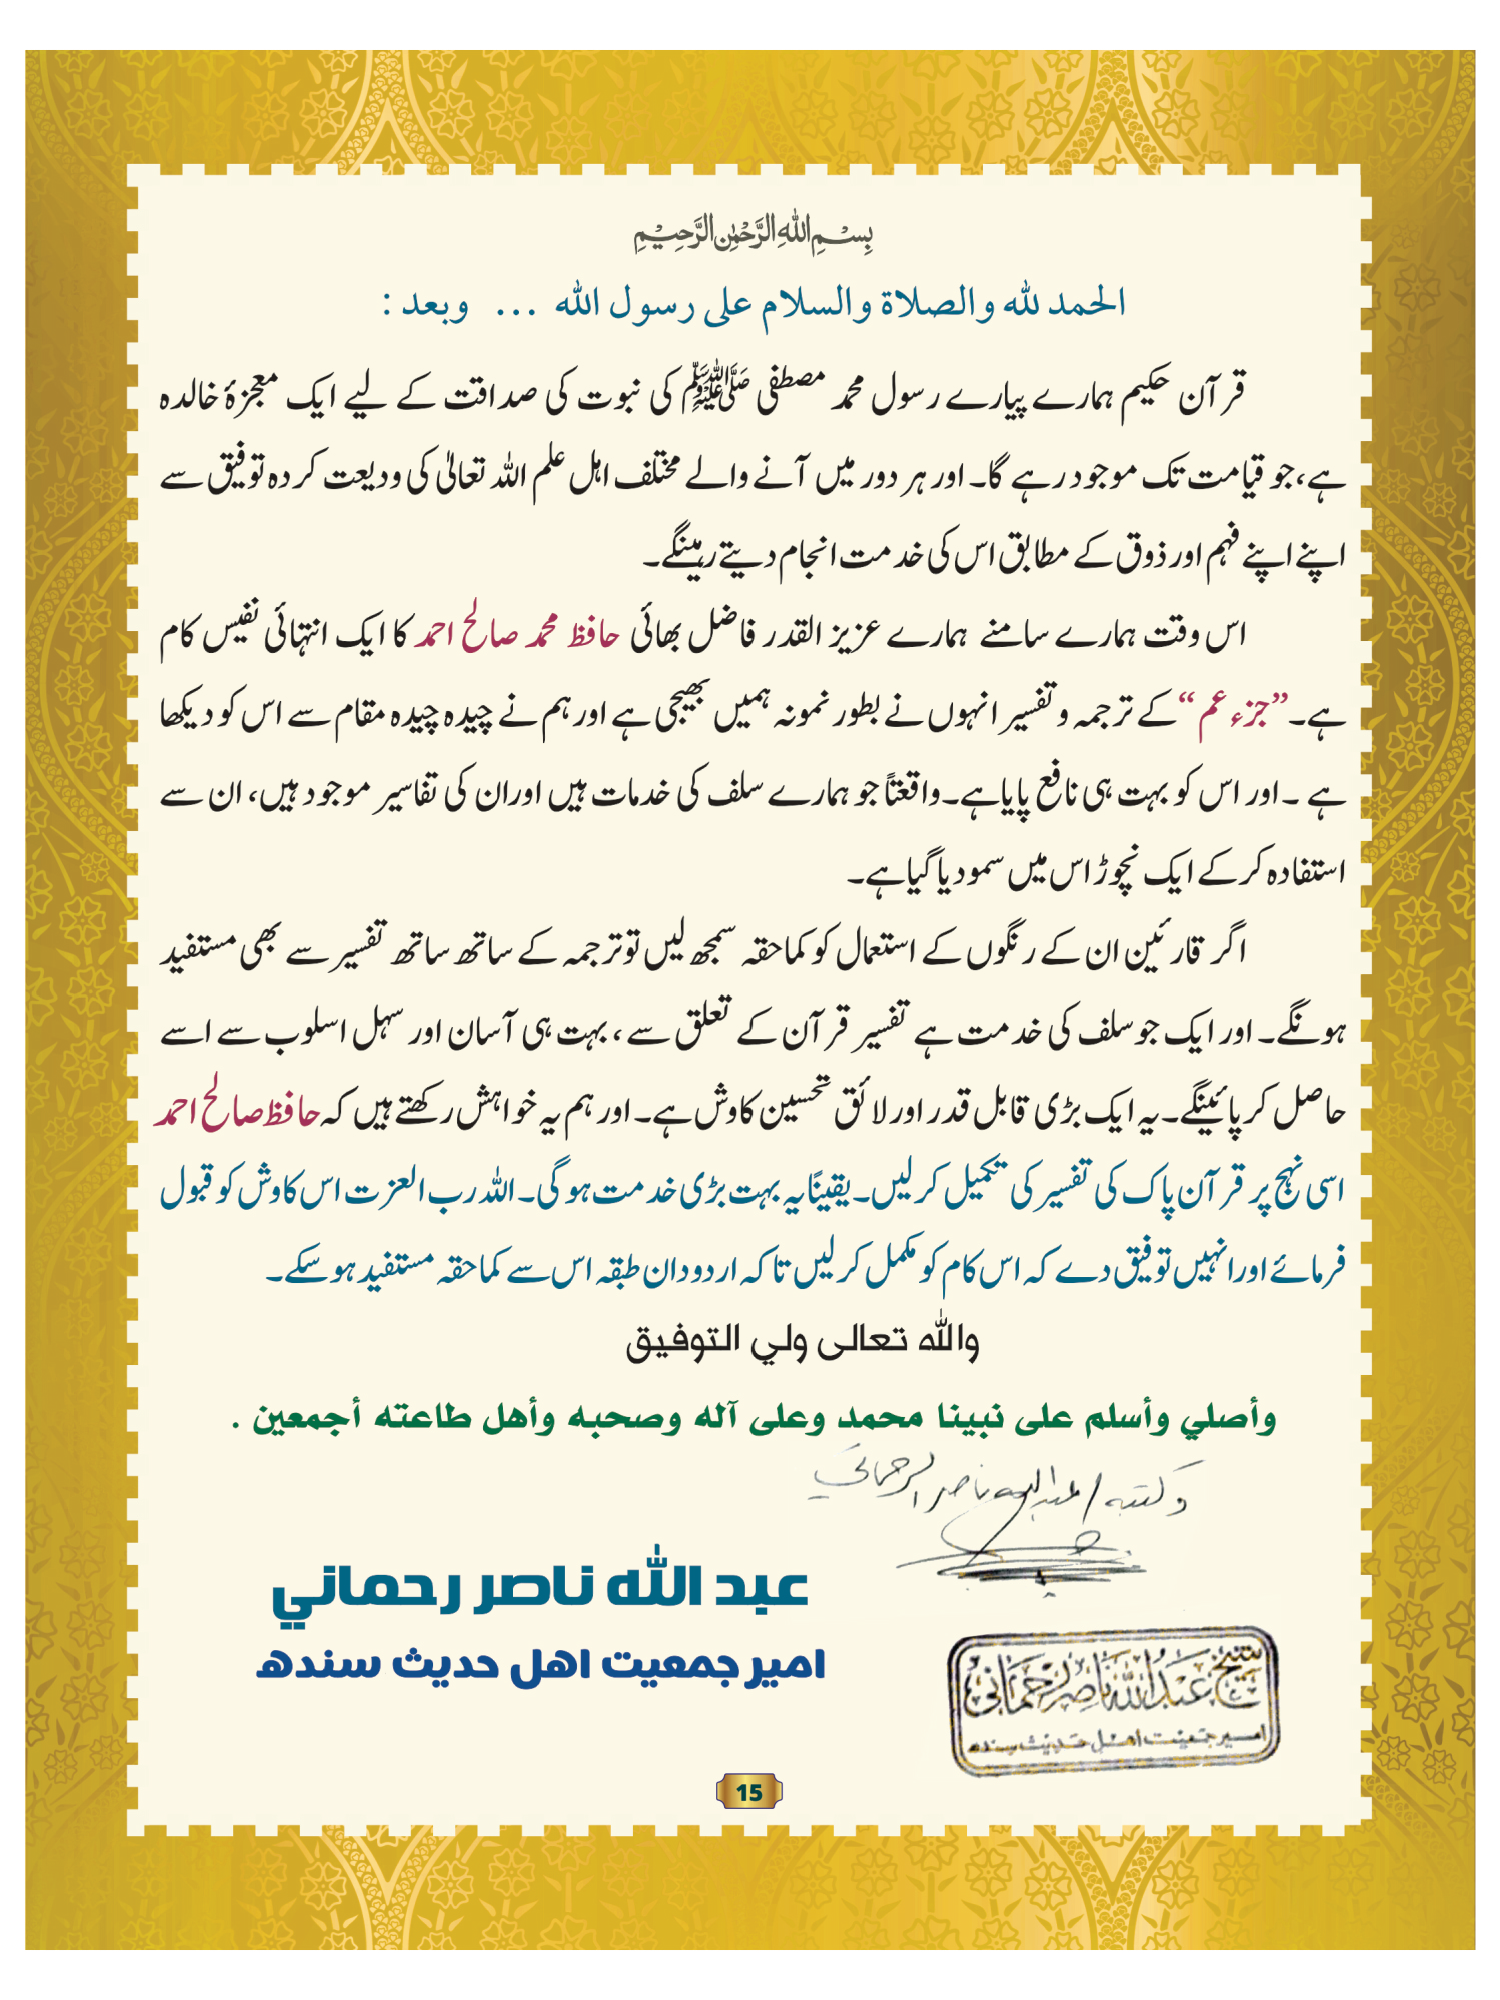 بِسْمِ اللهِ الرَّحْمٰنِ الرَّحِيْمِ
الحمد لله والصلاة والسلام على رسول الله ... وبعد :
قرآن حکیم ہمارے پیارے رسول محمد مصطفی ﷺ کی نبوت کی صداقت کے لیے ایک معجزۂ خالدہ
ہے، جو قیامت تک موجود رہے گا۔ اور ہر دور میں آنے والے مختلف اہل علم اللہ تعالیٰ کی ودیعت کردہ توفیق سے
اپنے اپنے فہم اور ذوق کے مطابق اس کی خدمت انجام دیتے رہینگے۔
اس وقت ہمارے سامنے ہمارے عزیز القدر فاضل بھائی حافظ محمد صالح احمد کا ایک انتہائی نفیس کام
ہے۔ ”جزء عم“ کے ترجمہ و تفسیر انہوں نے بطور نمونہ ہمیں بھیجی ہے اور ہم نے چیدہ چیدہ مقام سے اس کو دیکھا
ہے ۔ اور اس کو بہت ہی نافع پایا ہے۔ واقعتاً جو ہمارے سلف کی خدمات ہیں اور ان کی تفاسیر موجود ہیں، ان سے
استفادہ کر کے ایک نچوڑ اس میں سمو دیا گیا ہے۔
اگر قارئین ان کے رنگوں کے استعمال کو کماحقہ سمجھ لیں تو ترجمہ کے ساتھ ساتھ تفسیر سے بھی مستفید
ہونگے۔ اور ایک جو سلف کی خدمت ہے تفسیر قرآن کے تعلق سے، بہت ہی آسان اور سہل اسلوب سے اسے
حاصل کر پائینگے۔ یہ ایک بڑی قابل قدر اور لائق تحسین کاوش ہے۔ اور ہم یہ خواہش رکھتے ہیں کہ حافظ صالح احمد
اسی نہج پر قرآن پاک کی تفسیر کی تکمیل کر لیں۔ یقینًا یہ بہت بڑی خدمت ہو گی۔ اللہ رب العزت اس کاوش کو قبول
فرمائے اور انہیں توفیق دے کہ اس کام کو مکمل کر لیں تاکہ اردو دان طبقہ اس سے کماحقہ مستفید ہو سکے۔
والله تعالى ولي التوفيق
وأصلي وأسلم على نبينا محمد وعلى آله وصحبه وأهل طاعته أجمعين .
وكتبه / عبد الله ناصر الرحماني
عبد الله ناصر رحماني
امیر جمعیت اهل حدیث سندھ
شیخ عبد اللہ ناصر الرحمانی
امیر جمعیت اھل حدیث سندھ
15